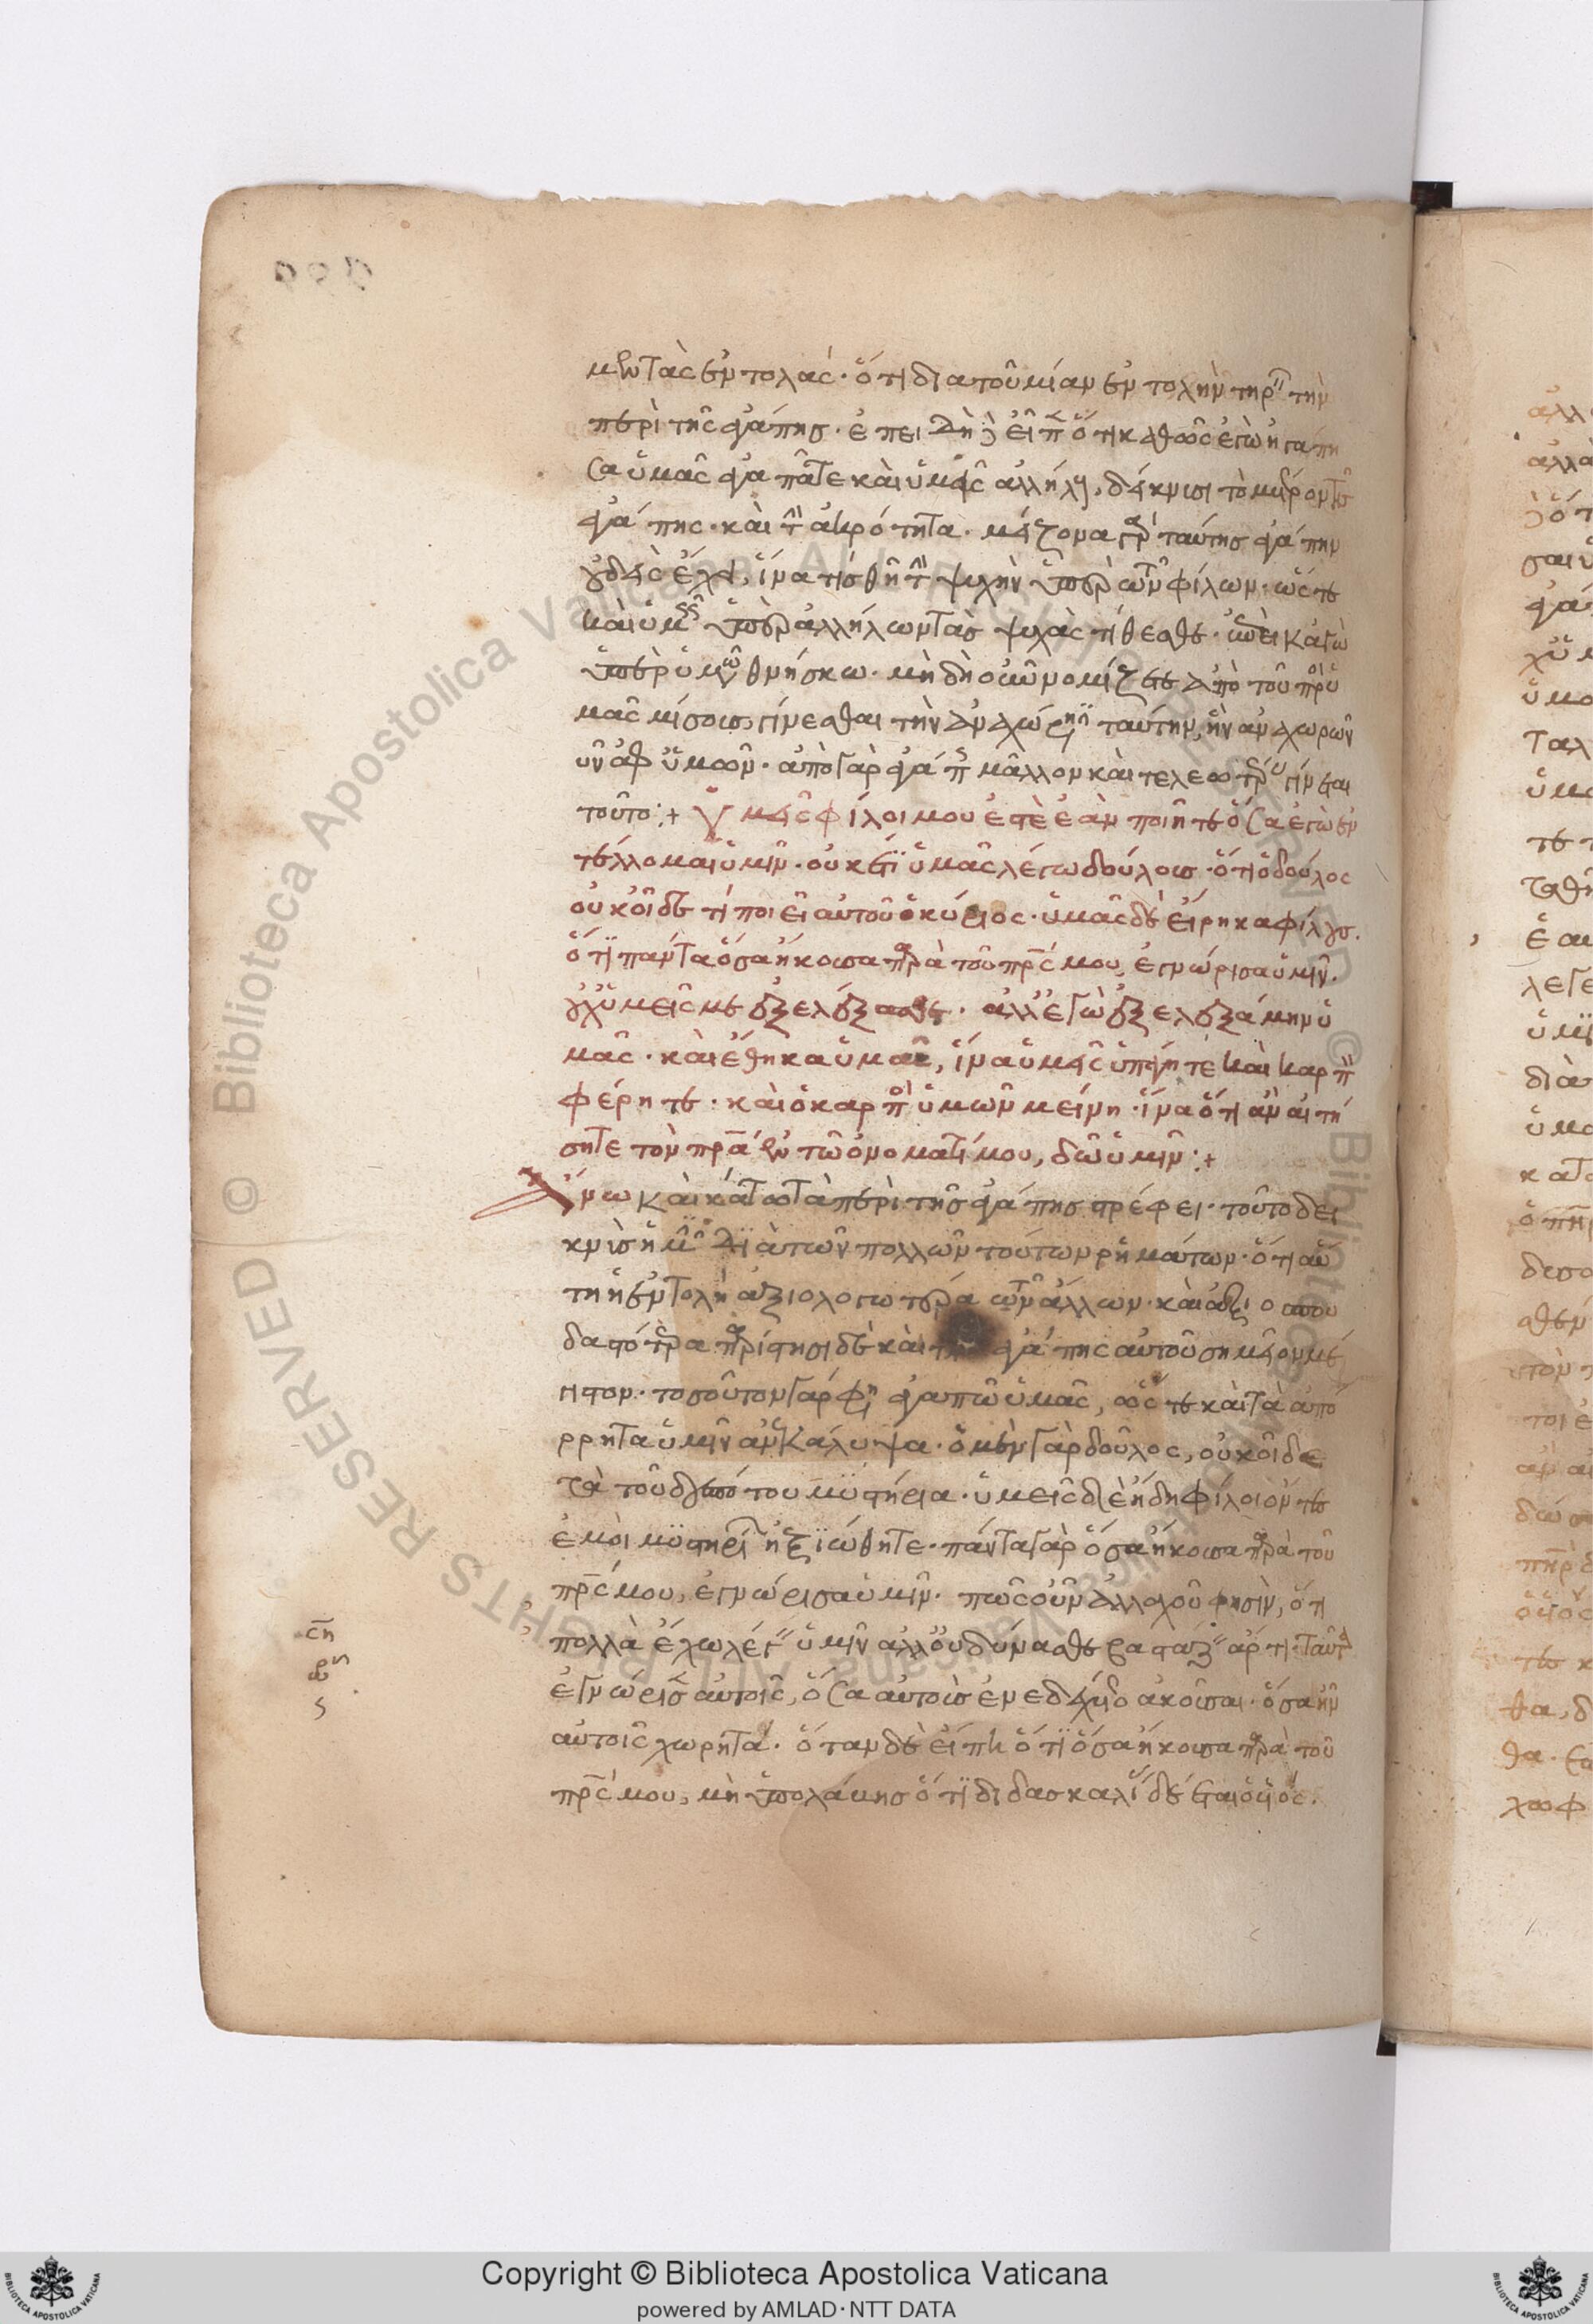 μου τὰς ἐντολάς· ὅτι διὰ τοῦ μίαν ἐντολὴν τηρ τὴν
περὶ τῆς ἀγάπης· ἐπειδὴ δὲ εἶπ ὅτι καθὼς ἐγὼ ἠγάπη
σα ὑμᾶς ἀγαπᾶτε καὶ ὑμεῖς ἀλλήλους, δείκνυσι τὸ
ἀγάπης· καὶ τὴν ἀκρότητα. μείζονα γὰρ ταύτης ἀγάπην
οὐδεὶς ἔχει, ἵνα τίς θῆ τὴν ψυχὴν ὑπὲρ τῶν φίλων· ὥστε
καὶ ὑμεῖς ὑπὲρ ἀλλήλων τὰς ψυχὰς τίθεσθε· ἐπεὶ κἀγὼ
ὑπὲρ ὑμῶν θνήσκω· μὴ δὴ οὖν νομίζετε ἀπὸ τοῦ πρὸς ὑ
μᾶς μίσους γίνεσθαι τὴν ἀναχώρησιν ταύτην, ἣν ἀναχωρῶ
νῦν ἀφ ὑμῶν· ἀπὸ γὰρ ἀγάπης μᾶλλον καὶ τελεωτέρου γίνεται
τοῦτο :+ ὑμεῖς φίλοι μου ἐστὲ ἐὰν ποιῆτε ὅσα ἐγὼ ἐν
τέλλομαι ὑμῖν· οὐκέτι ὑμᾶς λέγω δούλους· ὅτι ὁ δοῦλος
οὐκ οἶδε τί ποιεῖ αὐτοῦ ὁ κύριος· ὑμᾶς δὲ εἴρηκα φίλους·
ὅτι πάντα ὅσα ἤκουσα παρὰ τοῦ πρς μου, ἐγνώρισα ὑμῖν·
οὐχ ὑμεῖς με ἐξελέξασθε· ἀλλ ἐγὼ ἐξελεξάμην ὑ
μᾶς· καὶ ἔθηκα ὑμᾶς, ἵνα ὑμεῖς ὑπάγητε καὶ καρπὸν
φέρητε· καὶ ὁ καρπὸς ὑμῶν μείνη· ἵνα ὅτι ἂν αἰτή
σητε τὸν πρα ἐν τῶ ὀνόματί μου, δῶ ὑμῖν :+
Ἄνω καὶ κάτω τὰ περὶ τῆς ἀγάπης στρέφει· τοῦτο δεί
κνυσιν ἡμῖν διὰ τῶν πολλῶν τούτων ῥημάτων· ὅτι αὕ
τη ἡ ἐντολὴ ἀξιολογωτέρα τῶν ἄλλων· καὶ ἀξιοσπου
δαστότερα· παρίστησι δὲ καὶ τῆς ἀγάπης αὐτοῦ σημεῖον μέ
γιστον· τοσοῦτον γάρ φησιν ἀγαπῶ ὑμᾶς, ὥστε καὶ τὰ ἀπό
ρρητα ὑμῖν ἀνεκάλυψα· ὁ μὲν γὰρ δοῦλος, οὐκ οἶδε
τὰ τοῦ δεσπότου μυστήρια· ὑμεῖς δὲ ἤδη φίλοι ὄντες
ἐμοὶ μυστηρίων ἠξιώθητε· πάντα γὰρ ὅσα ἤκουσα παρὰ τοῦ
πρς μου, ἐγνώρισα ὑμῖν· πῶς οὖν ἀλλαχοῦ φησὶν, ὅτι
πολλὰ ἔχω λέγειν ὑμῖν ἀλλ οὐ δύνασθε βαστάζειν ἄρτι· ταῦτα
ἐγνώρισεν αὐτοῖς, ὅσα αὐτοὺς ἐνεδέχετο ἀκοῦσαι· ὅσα ἦν
αὐτοῖς χωρητά· ὅταν δὲ εἴπη ὅτι ὅσα ἤκουσα παρὰ τοῦ
πρς μου, μὴ ὑπολάβης ὅτι διδασκαλίας δέεται ὁ υἱός·
ση